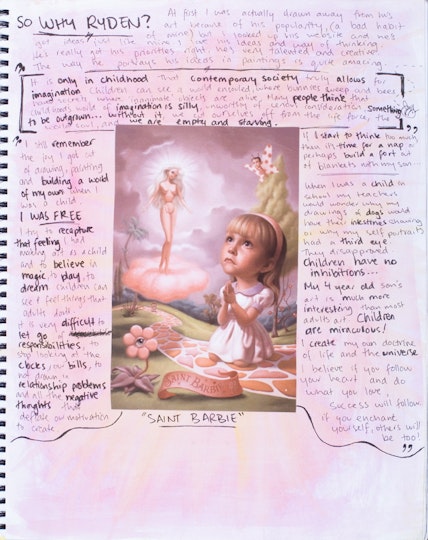 SO WHY RYDEN?
At first I was actually drawn away from his
art because of his popularity, (a bad habit
of mine) but I looked up his website and he's
got ideas just like mine! I love his ideas and way of thinking
He's really got his priorities right, he's very talented and creative
The way he portrays his ideas in paintings is quite amazing
"It is only in childhood that contemporary society truly allows for
imagination. Children can see a world ensouled, where bunnies weep and bees
have secrets, where inanimate objects are alive. Many people think that
childhoods world of imagination is silly, unworthy of serious consideration, something
to be outgrown... without it we cut ourselves off from the life force, the
world soul, and we are empty and starving.
"I still remember
the joy I got out
of drawing, painting
and building a world
of my own when I
was a child.
I WAS FREE
I try to recapture
that feeling I had
making art as a child
and to believe in
magic, to play, to
dream. Children can
see & feel things that
adults don't
It is very difficult to
let go
responsibilities, to
stop looking at the
clocks, our bills, to
not drown in
relationship problems
and all the negative
thoughts that
deflate our motivation
to create
SAINT BARBIE
"SAINT BARBIE"
If I start to think too much
then it's time for a nap or
perhaps build a fort out
of blankets with my son.
When I was a child in
school my teachers
would wonder why my
drawings of dogs would
have their intestines showing
or why my self portraits
had a third eye.
They disapproved.
Children have no
inhibitions...
My 4 year old son's
art is much more
interesting than most
adults art. Children
are miraculous!
I create my own doctrine
of life and the universe
I believe if you follow
your heart and do
what you love,
success will follow.
if you enchant
yourself, others will
be too!"